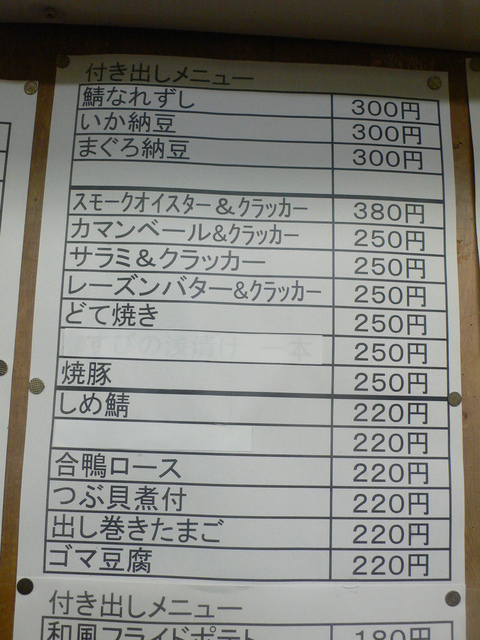 付き出しメニュー
鯖なれずし 300円
いか納豆 300円
まぐろ納豆 300円
スモークオイスター&クラッカー 380円
カマンベール&クラッカー 250円
サラミ&クラッカー 250円
レーズンバター&クラッカー 250円
どて焼き 250円
250円
焼豚 250円
しめ鯖 220円
220円
合鴨ロース 220円
つぶ貝煮付 220円
出し巻きたまご 220円
ゴマ豆腐 220円
付き出しメニュー
和風フライドポテト 180円